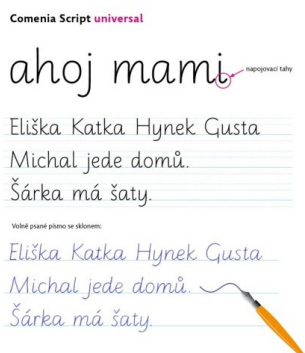 Comenia Script universal
ahoj mami
napojovací tahy
Eliška Katka Hynek Gusta
Michal jede domů.
Šárka má šaty.
Volně psané písmo se sklonem:
Eliška Katka Hynek Gusta
Michal jede domů.
Šárka má šaty.